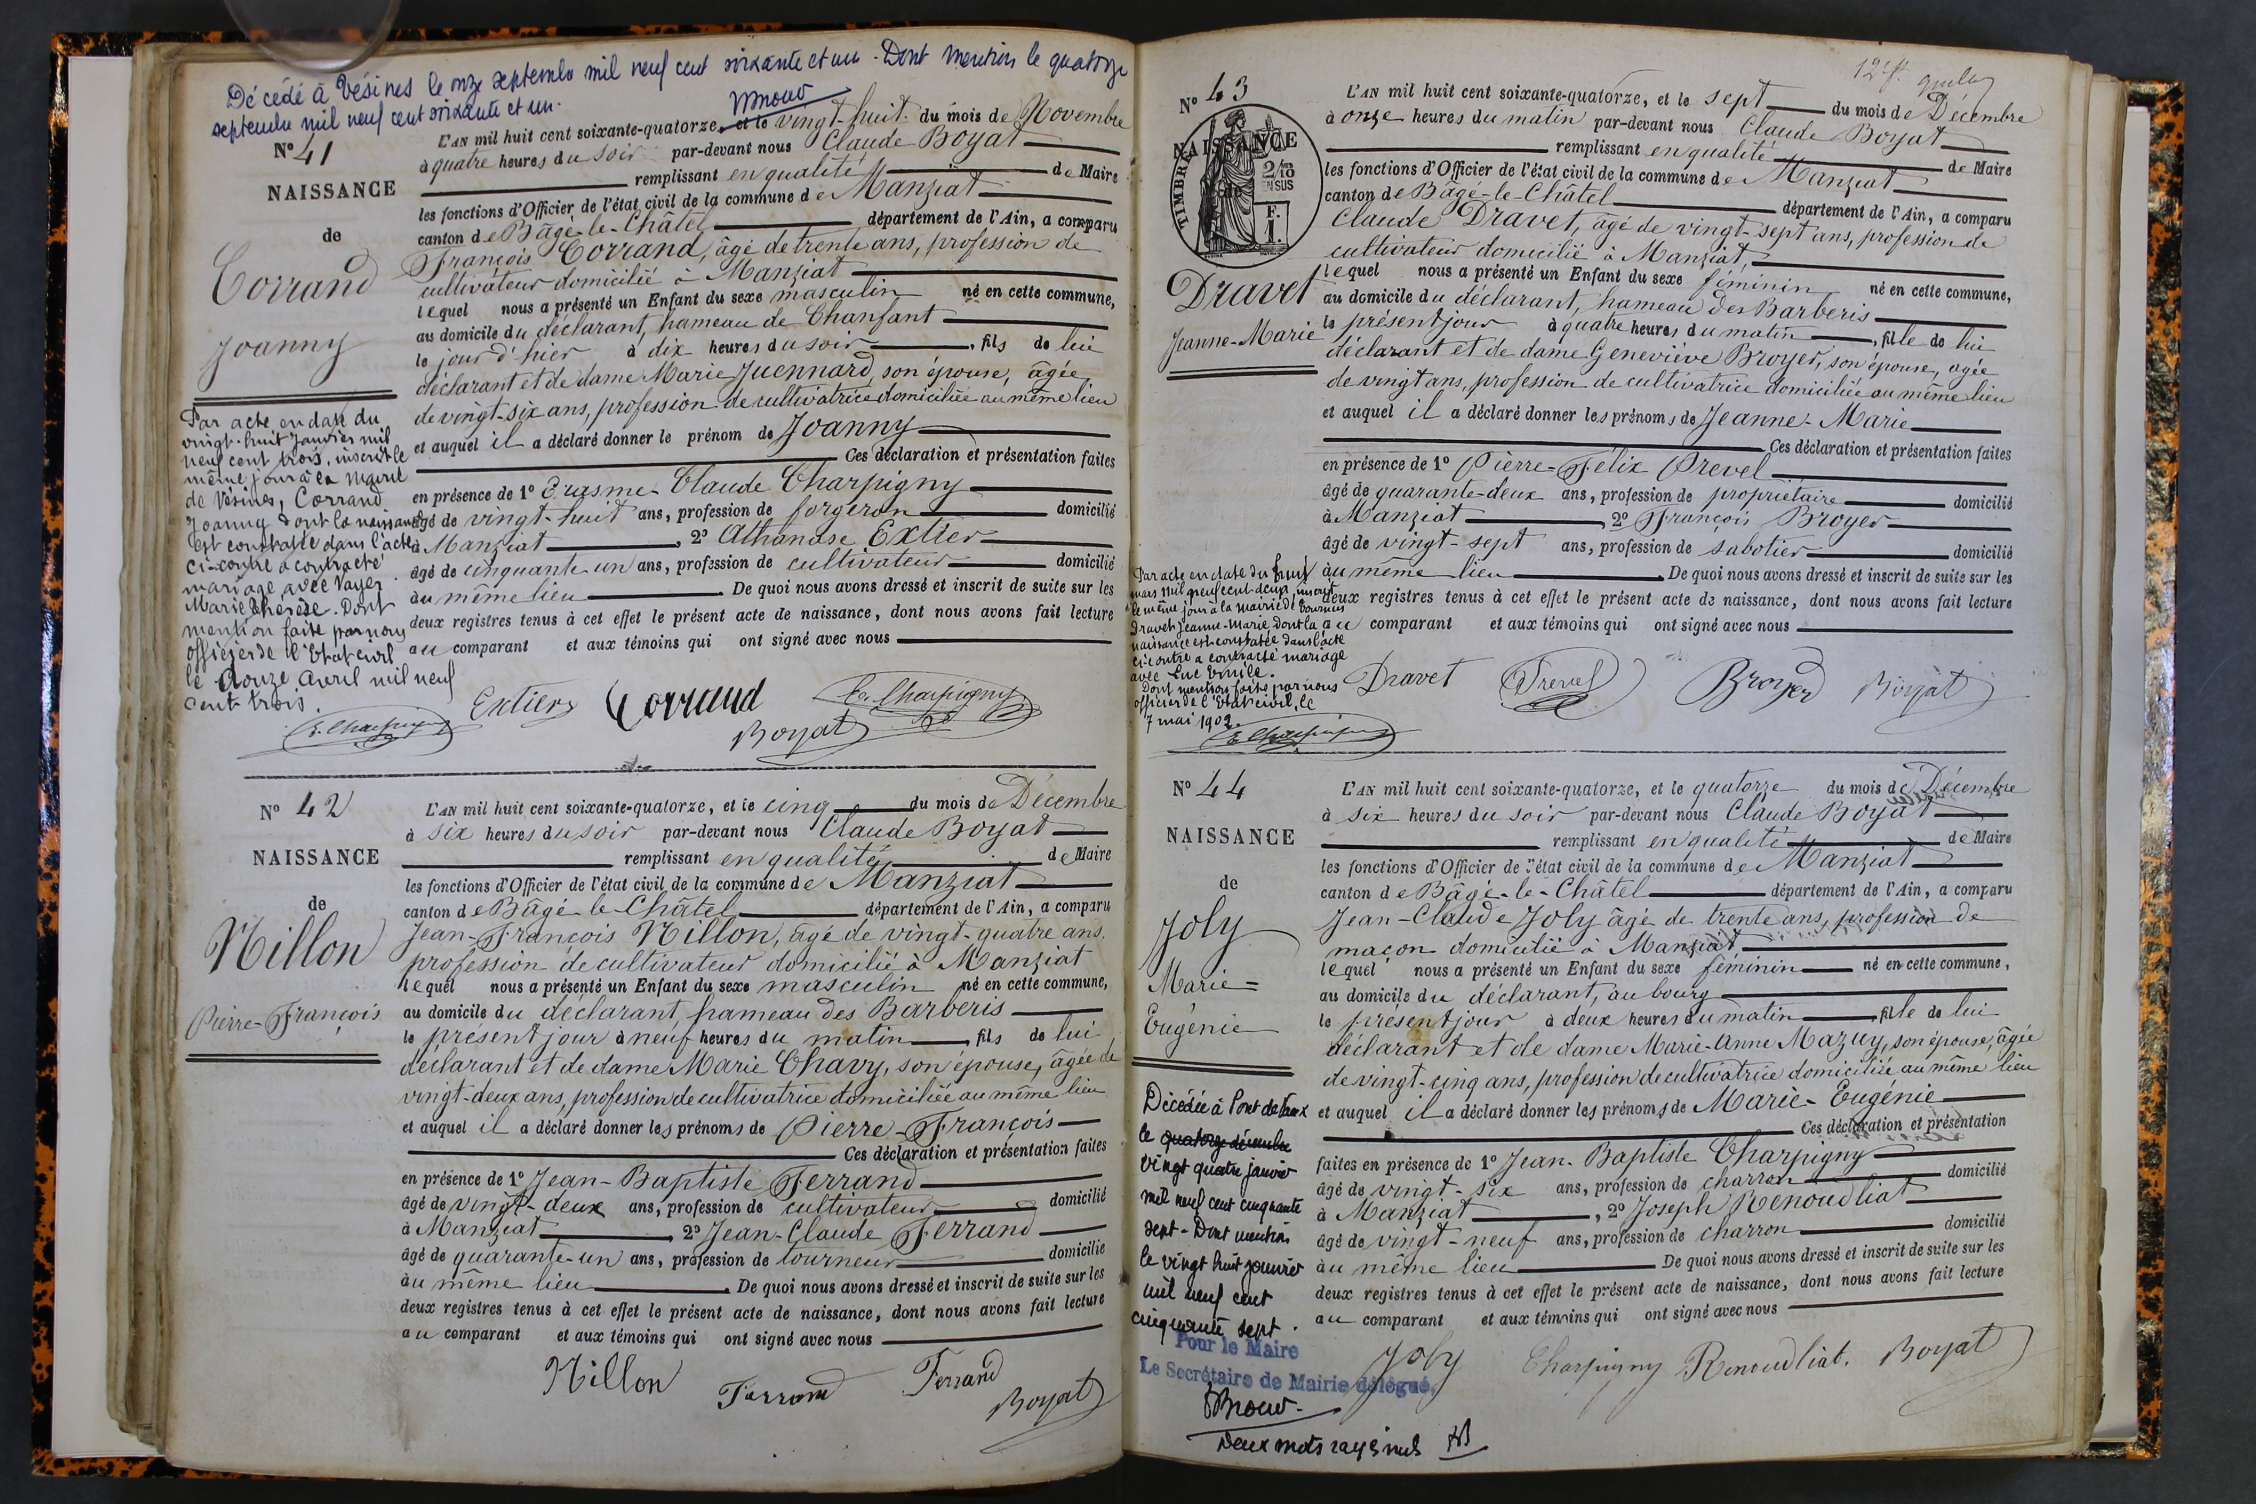 Décédé à Vésines le onze septembre mil neuf cent soixante et un. Dont mention le quatorze
septembre mil neuf cent soixante et un.
N° 41
NAISSANCE
de
Corrand
Joanny
Par acte en date du
vingt-huit janvier mil
neuf cent trois, inscrit le
même jour à la mairie
de Vésines, Corrand
Joanny dont la naissance
est constatée dans l'acte
ci-contre a contracté
mariage avec Vayer
Marie Thérèse. Dont
mention faite par nous
officier de l'Etat civil
le douze avril mil neuf
cent trois.
L'AN mil huit cent soixante-quatorze, et le vingt-huit du mois de Novembre
à quatre heures du soir par-devant nous Claude Boyat
remplissant en qualité de Maire
les fonctions d'Officier de l'état civil de la commune de Manziat
canton de Bâgé-le-Châtel département de l'Ain, a comparu
François Corrand, âgé de trente ans, profession de
cultivateur domicilié à Manziat
lequel nous a présenté un Enfant du sexe masculin né en cette commune,
au domicile du déclarant, hameau de Chanfant
le jour d'hier à dix heures du soir, fils de lui
déclarant et de dame Marie Juennard, son épouse, âgée
de vingt-six ans, profession de cultivatrice domiciliée au même lieu
et auquel il a déclaré donner le prénom de Joanny
Ces déclaration et présentation faites
en présence de 1° Erasme-Claude Charpigny
âgé de vingt-huit ans, profession de forgeron domicilié
à Manziat, 2° Athanase Extier
âgé de cinquante-un ans, profession de cultivateur domicilié
au même lieu. De quoi nous avons dressé et inscrit de suite sur les
deux registres tenus à cet effet le présent acte de naissance, dont nous avons fait lecture
au comparant et aux témoins qui ont signé avec nous
Extier Corrand E. Charpigny
Boyat
E. Charpigny
N° 42
NAISSANCE
de
Nillon
Pierre-François
L'AN mil huit cent soixante-quatorze, et le cinq du mois de Décembre
à six heures du soir par-devant nous Claude Boyat
remplissant en qualité de Maire
les fonctions d'Officier de l'état civil de la commune de Manziat
canton de Bâgé-le-Châtel département de l'Ain, a comparu
Jean-François Nillon, âgé de vingt-quatre ans,
profession de cultivateur domicilié à Manziat
lequel nous a présenté un Enfant du sexe masculin né en cette commune,
au domicile du déclarant, hameau des Barberis
le présent jour à neuf heures du matin, fils de lui
déclarant et de dame Marie Chavy, son épouse, âgée de
vingt-deux ans, profession de cultivatrice domiciliée au même lieu
et auquel il a déclaré donner les prénoms de Pierre-François
Ces déclaration et présentation faites
en présence de 1° Jean-Baptiste Ferrand
âgé de vingt-deux ans, profession de cultivateur domicilié
à Manziat, 2° Jean-Claude Ferrand
âgé de quarante-un ans, profession de tourneur domicilié
au même lieu. De quoi nous avons dressé et inscrit de suite sur les
deux registres tenus à cet effet le présent acte de naissance, dont nous avons fait lecture
au comparant et aux témoins qui ont signé avec nous
Nillon Ferrand Ferrand
Boyat
N° 43
NAISSANCE
de
TIMBRE
2/10
EN SUS
F.
1.
Dravet
Jeanne-Marie
Par acte en date du huit
mars mil neuf cent deux, inscrit
le même jour à la mairie de
Dravet Jeanne-Marie dont la
naissance est constatée dans l'acte
ci-contre a contracté mariage
avec Luc Emile.
Dont mention faite par nous
officier de l'Etat civil, le
7 mai 1902.
E. Charpigny
L'AN mil huit cent soixante-quatorze, et le sept du mois de Décembre
à onze heures du matin par-devant nous Claude Boyat
remplissant en qualité de Maire
les fonctions d'Officier de l'état civil de la commune de Manziat
canton de Bâgé-le-Châtel département de l'Ain, a comparu
Claude Dravet, âgé de vingt-sept ans, profession de
cultivateur domicilié à Manziat,
lequel nous a présenté un Enfant du sexe féminin né en cette commune,
au domicile du déclarant, hameau des Barberis
le présent jour à quatre heures du matin, fille de lui
déclarant et de dame Geneviève Broyer, son épouse, âgée
de vingt ans, profession de cultivatrice domiciliée au même lieu
et auquel il a déclaré donner les prénoms de Jeanne-Marie
Ces déclaration et présentation faites
en présence de 1° Pierre-Félix Prevel
âgé de quarante-deux ans, profession de propriétaire domicilié
à Manziat, 2° François Broyer
âgé de vingt-sept ans, profession de sabotier domicilié
au même lieu. De quoi nous avons dressé et inscrit de suite sur les
deux registres tenus à cet effet le présent acte de naissance, dont nous avons fait lecture
au comparant et aux témoins qui ont signé avec nous
Dravet Prevel Broyer Boyat
N° 44
NAISSANCE
de
Joly
Marie-
Eugénie
Décédée à Pont de Vaux
le quatorze décembre
vingt quatre janvier
mil neuf cent cinquante
sept - Dont mention
le vingt huit janvier
mil neuf cent
cinquante sept.
Pour le Maire
Le Secrétaire de Mairie délégué,
Deux mots rayés nuls
L'AN mil huit cent soixante-quatorze, et le quatorze du mois de Décembre
à six heures du soir par-devant nous Claude Boyat
remplissant en qualité de Maire
les fonctions d'Officier de l'état civil de la commune de Manziat
canton de Bâgé-le-Châtel département de l'Ain, a comparu
Jean-Claude Joly âgé de trente ans, profession de
maçon domicilié à Manziat,
lequel nous a présenté un Enfant du sexe féminin né en cette commune,
au domicile du déclarant, au bourg
le présent jour à deux heures du matin, fille de lui
déclarant et de dame Marie-Anne Mazuy, son épouse, âgée
de vingt-cinq ans, profession de cultivatrice domiciliée au même lieu
et auquel il a déclaré donner les prénoms de Marie-Eugénie
Ces déclaration et présentation
faites en présence de 1° Jean-Baptiste Charpigny
âgé de vingt-six ans, profession de charron domicilié
à Manziat, 2° Joseph Renoud liat
âgé de vingt-neuf ans, profession de charron domicilié
au même lieu. De quoi nous avons dressé et inscrit de suite sur les
deux registres tenus à cet effet le présent acte de naissance, dont nous avons fait lecture
au comparant et aux témoins qui ont signé avec nous
Joly Charpigny Renoudliat. Boyat